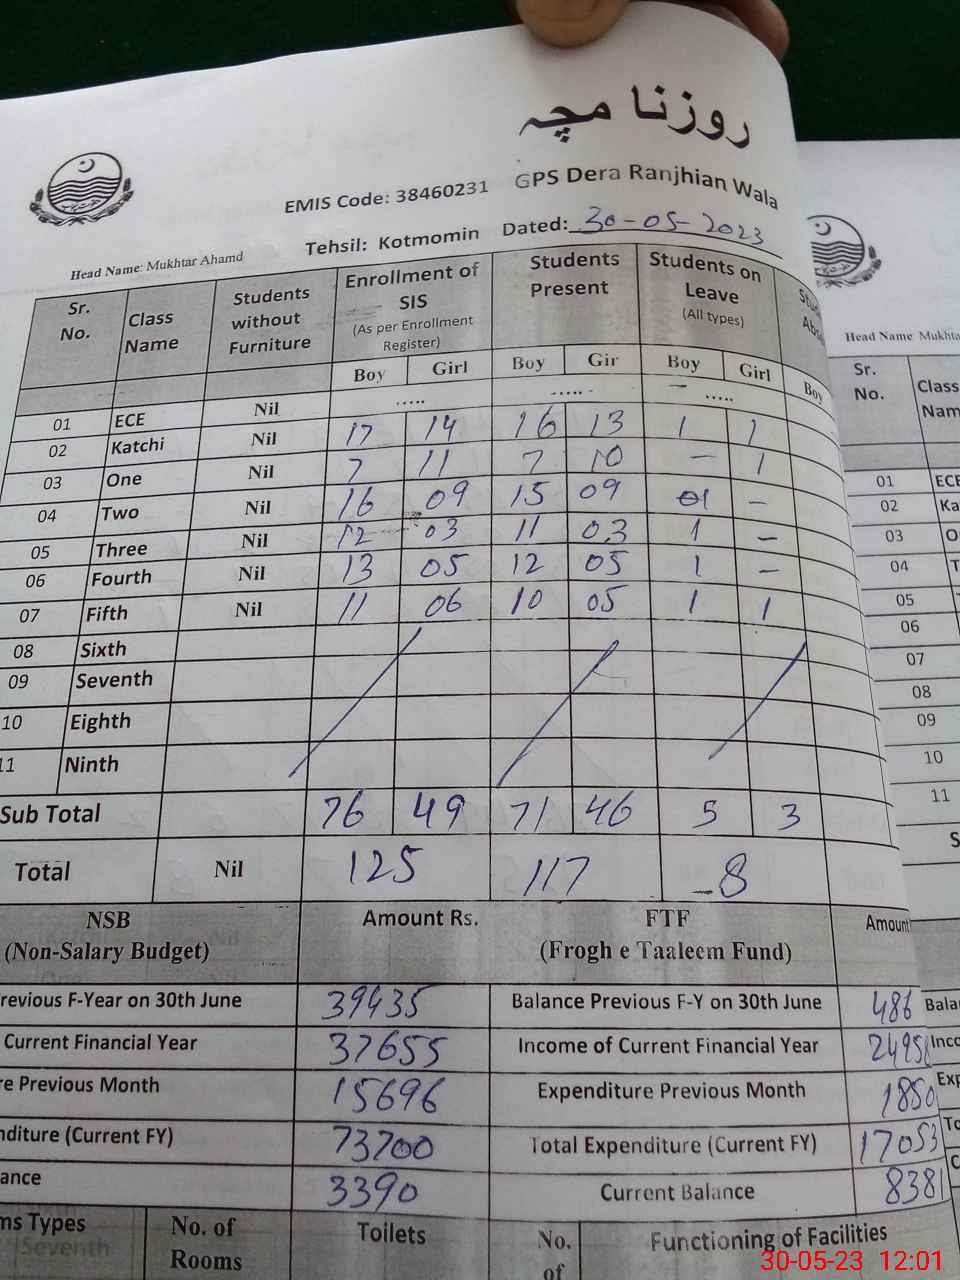 روزنا مچہ
EMIS Code: 38460231 GPS Dera Ranjhian Wala
Head Name: Mukhtar Ahamd Tehsil: Kotmomin Dated: 30-05-2023
Sr. No. Class Name Students without Furniture Enrollment of SIS (As per Enrollment Register) Students Present Students on Leave (All types)
Boy Girl Boy Gir Boy Girl Boy
01 ECE Nil ..... ..... – .....
02 Katchi Nil 17 14 16 13 1 1
03 One Nil 7 11 7 10 – 1
04 Two Nil 16 09 15 09 01 –
05 Three Nil 12 03 11 03 1 –
06 Fourth Nil 13 05 12 05 1 –
07 Fifth Nil 11 06 10 05 1 1
08 Sixth
09 Seventh
10 Eighth
11 Ninth
Sub Total 76 49 71 46 5 3
Total Nil 125 117 8
NSB (Non-Salary Budget) Amount Rs. FTF (Frogh e Taaleem Fund) Amount
Previous F-Year on 30th June 39435 Balance Previous F-Y on 30th June 486
Current Financial Year 37655 Income of Current Financial Year 24958
re Previous Month 15696 Expenditure Previous Month 1850
nditure (Current FY) 73700 Total Expenditure (Current FY) 17053
ance 3390 Current Balance 8381
ms Types No. of Rooms Toilets No. of Functioning of Facilities
Head Name Mukhta
Sr. No. Class Nam
01 ECE
02 Ka
03 O
04 T
05
06
07
08
09
10
11
S
30-05-23 12:01